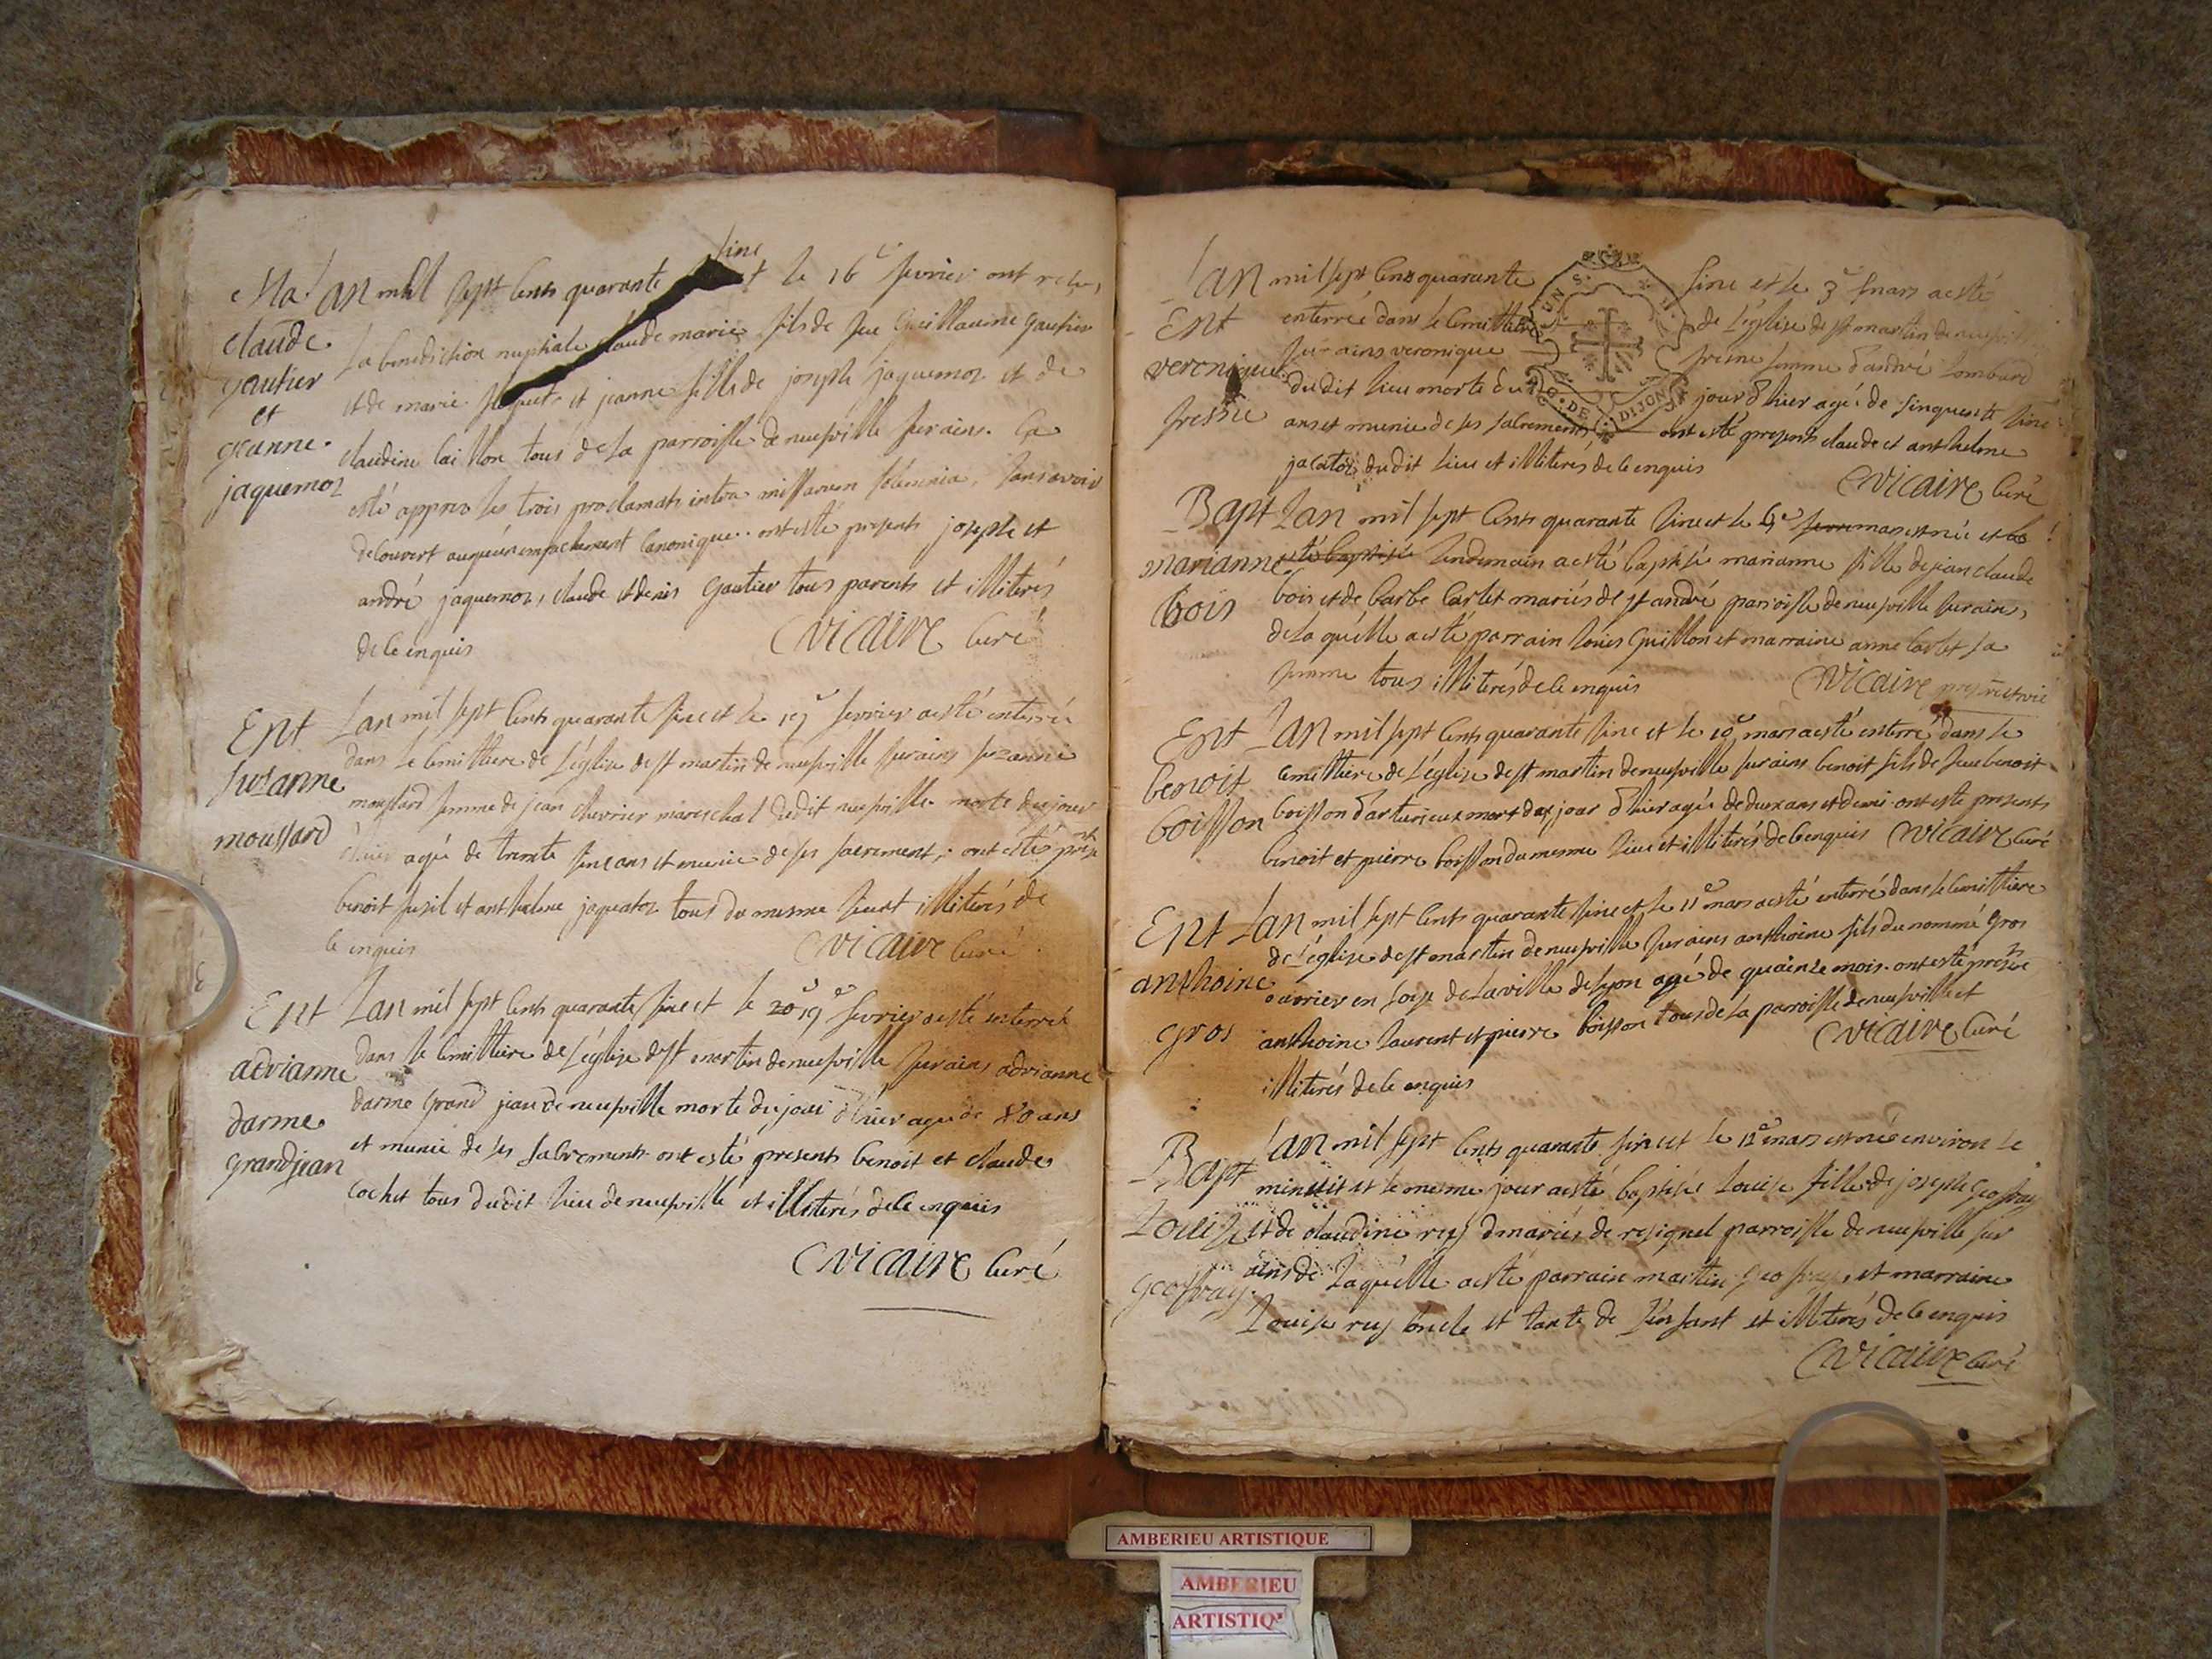 Ma
claude
gautier
et
jeanne
jaquemoz
sinc
Lan mil sept cents quarante et le 16e fevrier ont recu
la benediction nuptiale claude marie fils de feu Guillaume gautier
et de marie et jeanne fille de joseph jaquemoz et de
claudine tous de la parroisse de neufville sur ains. Ca
esté appres les trois proclamats intra missarum solemnia, sans avoir
decouvert aucun empachement canonique. ont esté presents joseph et
andré jaquemoz, claude et denis gautier tous parents et illiterés
de ce enquis Vicaire Curé
Ent
suzanne
moussard
Lan mil sept cents quarante sinc et le 17e fevrier a esté enterrée
dans le cimittiere de l'église de st martin de neufville sur ains suzanne
moussard femme de jean chevrier mareschal dudit neufville morte du jour
d'hier agée de trente sinc ans et munie de ses sacrements. ont esté présts
benoit et anthelme jaquatoz tous du mesme lieu et illiterés de
ce enquis Vicaire Curé
Ent
adrianne
darme
grandjean
Lan mil sept cents quarante sinc et le 20e 19e fevrier a esté enterrée
dans le cimittiere de l'église de st martin de neufville sur ains adrianne
darme grand jean de neufville morte du jour d'hier agée de 80 ans
et munie de ses sacrements ont esté presents benoit et claude
cochet tous dudit lieu de neufville et illiterés de ce enquis
Vicaire Curé
Ent
veronique
fresne
Lan mil sept cents quarante sinc et le 3e mars a esté
enterrée dans le cimittiere de l'église de st martin de neufville
sur ains veronique fresne femme d'andré lombard
dudit lieu morte du jour d'hier agée de sinquente sinc
ans et munie de ses sacrements, ont esté presents claude et anthelme
jacatoz dudit lieu et illiterés de ce enquis
Vicaire Curé
DIJON
Bapt
marianne
bois
Lan mil sept cents quarante sinc et le mars est née et
lendemain a esté baptisée marianne fille de jean claude
bois et de barbe carlet mariés de st andré parroisse de neufville sur ains,
de laquélle a esté parrain louis Guillon et marraine anne carlet sa
femme tous illiterés de ce enquis Vicaire
Ent
benoit
boisson
Lan mil sept cents quarante sinc et le 10e mars a esté enterré dans le
cimittiere de l'église de st martin de neufville sur ains benoit fils de feu benoit
boisson d'arturieux mort du jour d'hier agée de deux ans et demi. ont esté presents
benoit et pierre boisson du mesme lieu et illiterés de ce enquis Vicaire Curé
Ent
anthoine
gros
Lan mil sept cents quarante sinc et le 11e mars a esté enterré dans le cimittiere
de l'église de st martin de neufville sur ains anthoine fils du nommé gros
ouvrier en soye de la ville de lyon agé de quainze mois. ont esté présts
anthoine laurent et pierre boisson tous de la parroisse de neufville et
illiterés de ce enquis Vicaire Curé
Bapt
Louise
geoffray
Lan mil sept cents quarante sinc et le 12e mars est née environ le
minuit et le meme jour a esté baptisée Louise fille de joseph geoffray
et de claudine rey mariés de resignel parroisse de neufville sur
ains de laquélle a esté parrain martin geoffray, et marraine
Louise rey oncle et tante de l'enfant et illiterés de ce enquis
Vicaire Curé
AMBERIEU ARTISTIQUE
AMBERIEU
ARTISTIQ